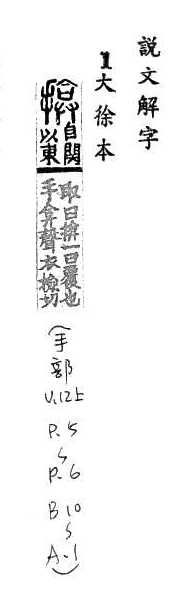 說文解字
1大徐本
揜自關
以東
取曰揜一曰覆也
手弇聲衣檢切
(手部
V.12上
P.5
〜
P.6
B10
〜
A-1)